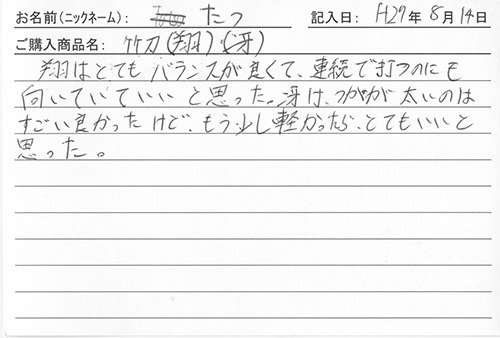 お名前(ニックネーム): たつ 記入日: H27年 8月 14日
ご購入商品名: 竹刀(翔)(冴)
翔はとてもバランスが良くて、連続で打つのにも
向いていていいと思った。冴は、つかが太いのは
すごい良かったけど、もう少し軽かったら、とてもいいと
思った。